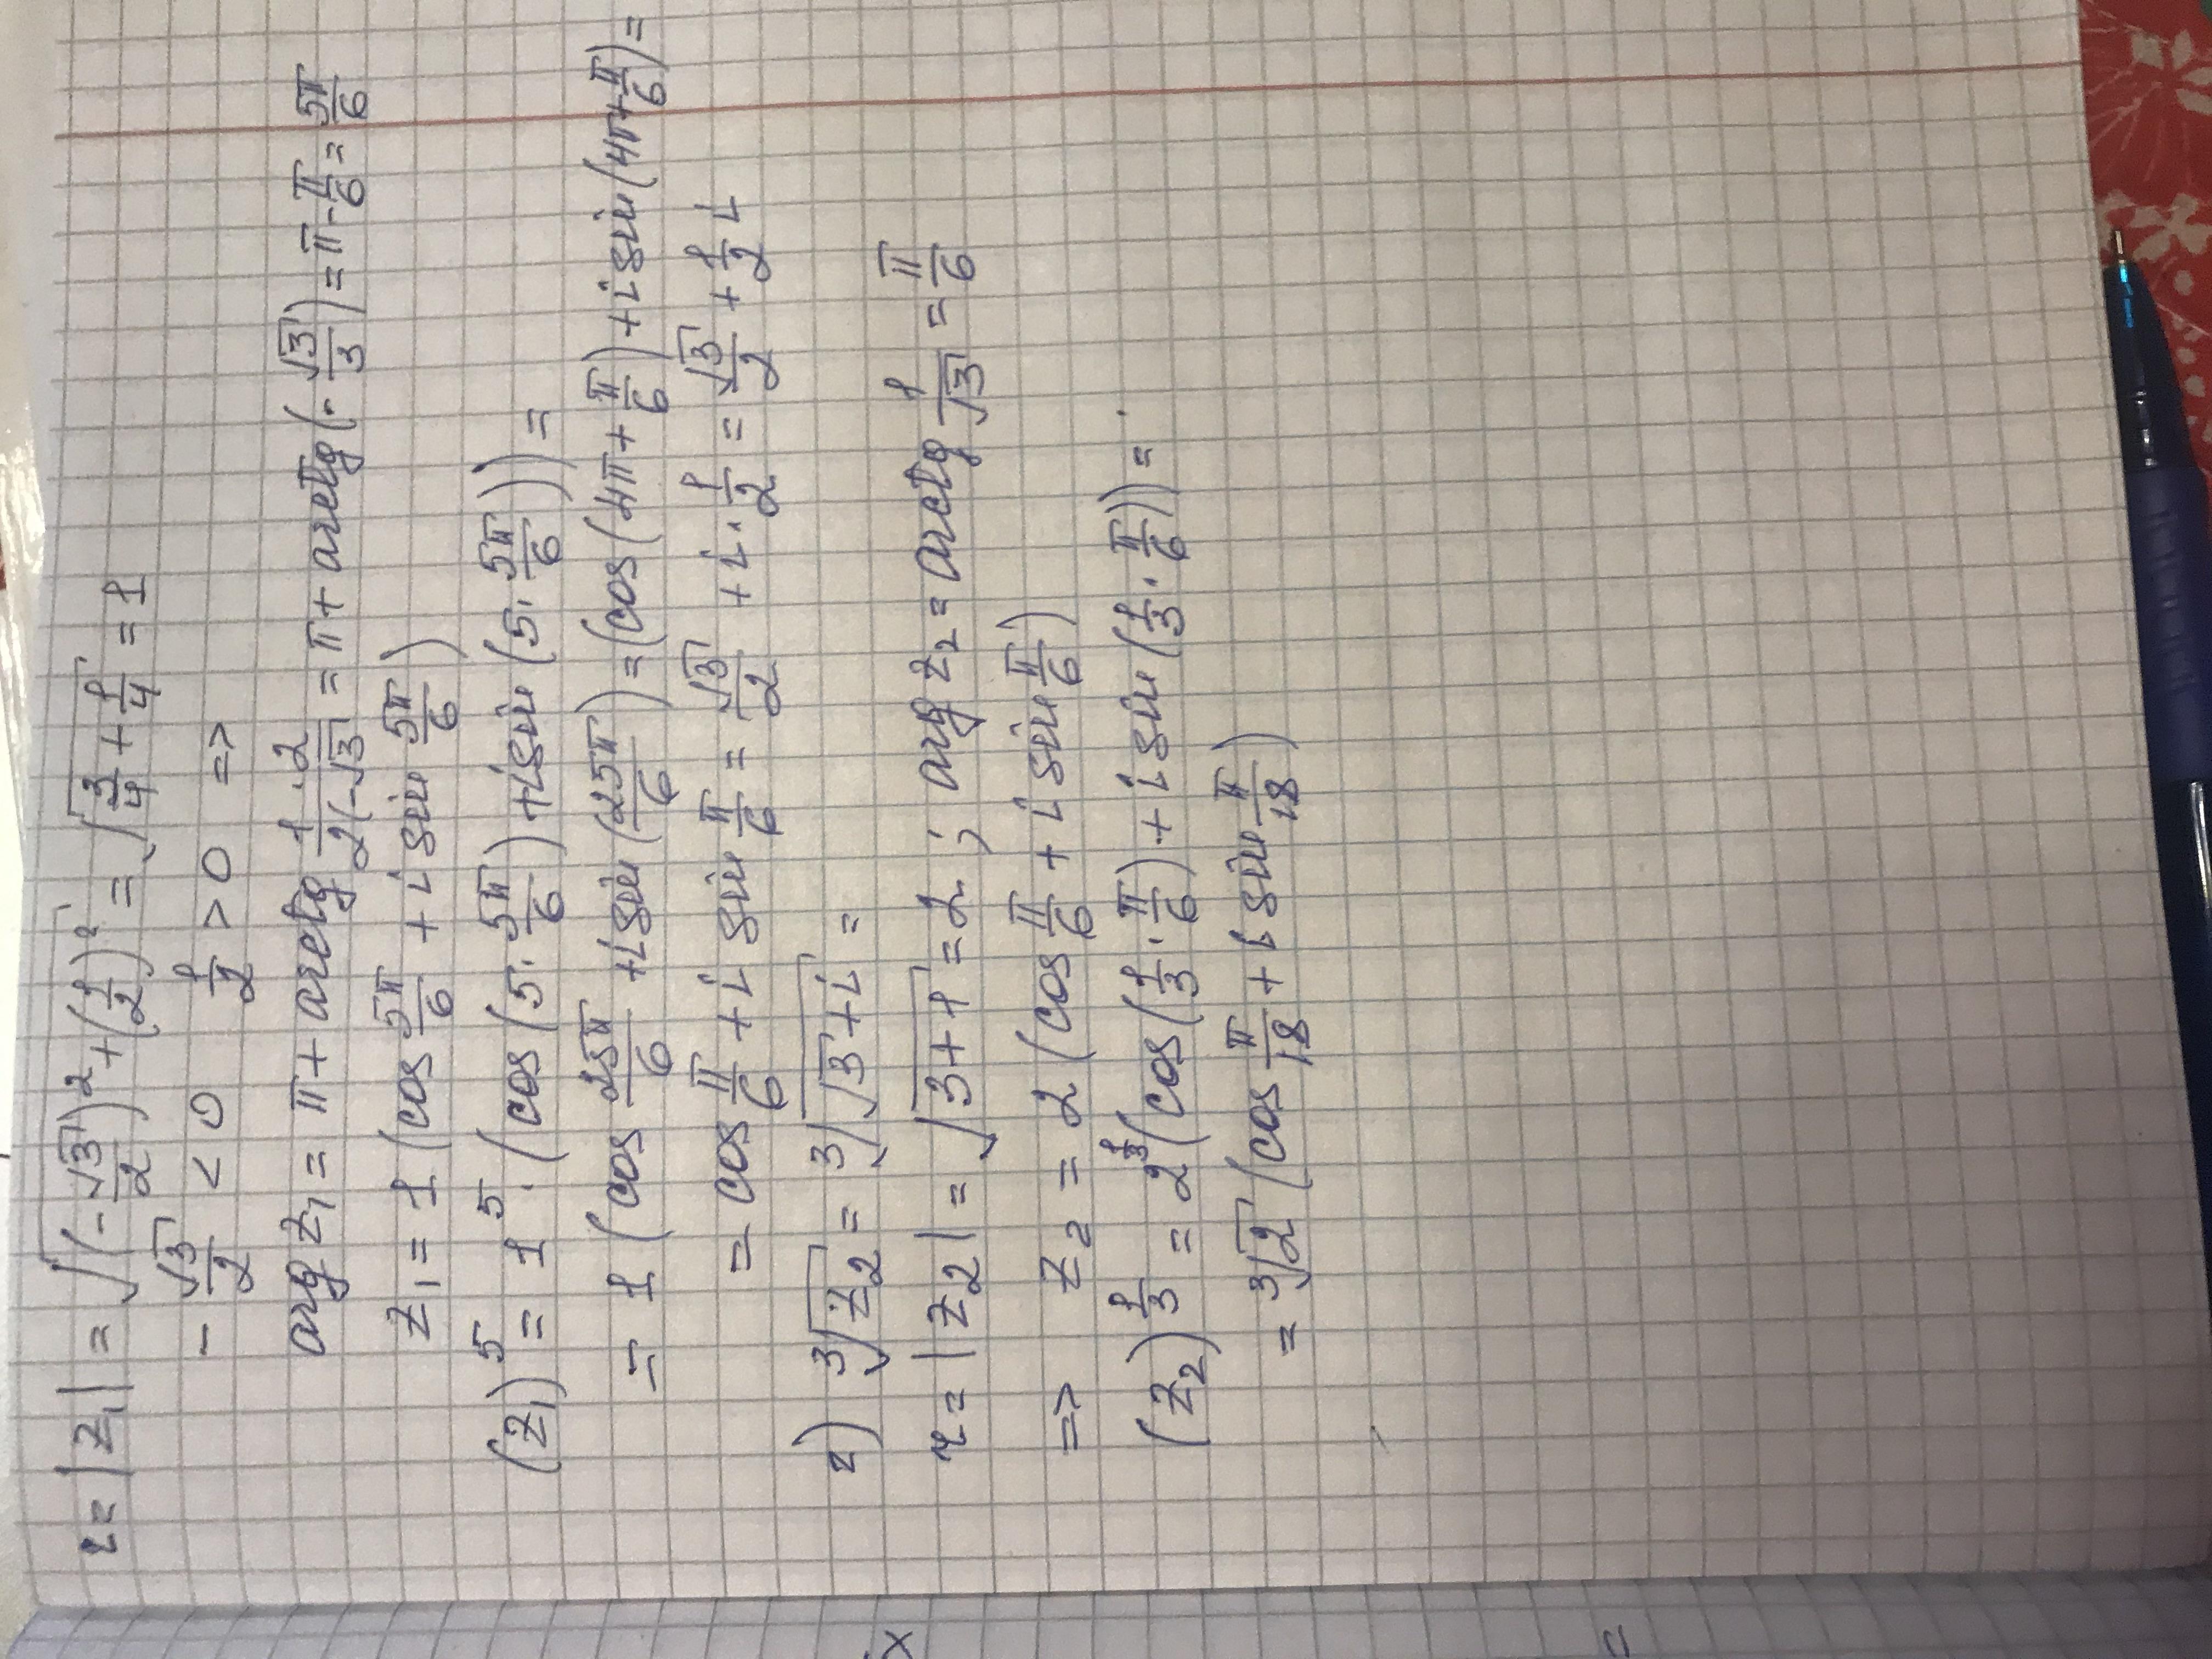 r = |z₁| = √((-√3/2)² + (1/2)²) = √(3/4 + 1/4) = 1
- √3/2 < 0   1/2 > 0 =>
arg z₁ = π + arctg (1·2)/(2(-√3)) = π + arctg(-√3/3) = π - π/6 = 5π/6
z₁ = 1 (cos 5π/6 + i sin 5π/6)
(z₁)⁵ = 1⁵ · (cos (5 · 5π/6) + i sin (5 · 5π/6)) =
= 1 (cos 25π/6 + i sin (25π/6) = (cos (4π + π/6) + i sin (4π + π/6) =
= cos π/6 + i sin π/6 = √3/2 + i · 1/2 = √3/2 + 1/2 i
2) ³√z₂ = ³√(√3 + i) =
r = |z₂| = √(3+1) = 2 ; arg z₂ = arctg 1/√3 = π/6
=> z₂ = 2 (cos π/6 + i sin π/6)
(z₂)^(1/3) = 2^(1/3) (cos (1/3 · π/6) + i sin (1/3 · π/6)) =
= ³√2 (cos π/18 + i sin π/18)
x
=